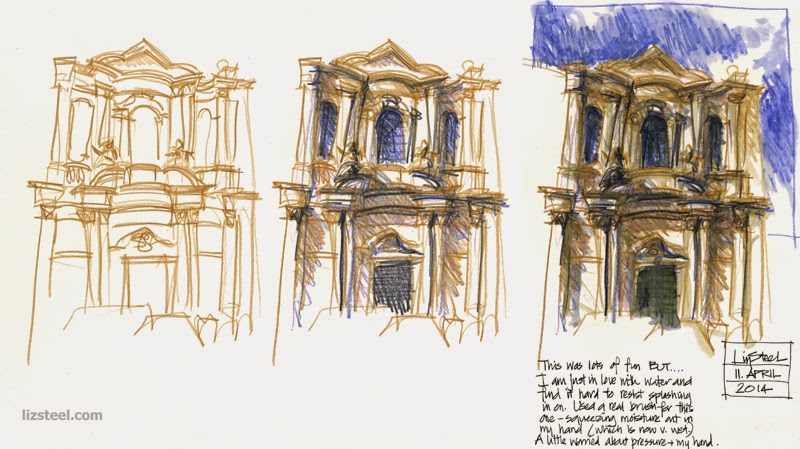 This was lots of fun BUT....
I am just in love with water and
find it hard to resist splashing
in on. Used a real brush for this
one - squeezing moisture out in
my hand (which is now v. wet)
A little worried about pressure + my hand.
Liz Steel
11. APRIL
2014
lizsteel.com